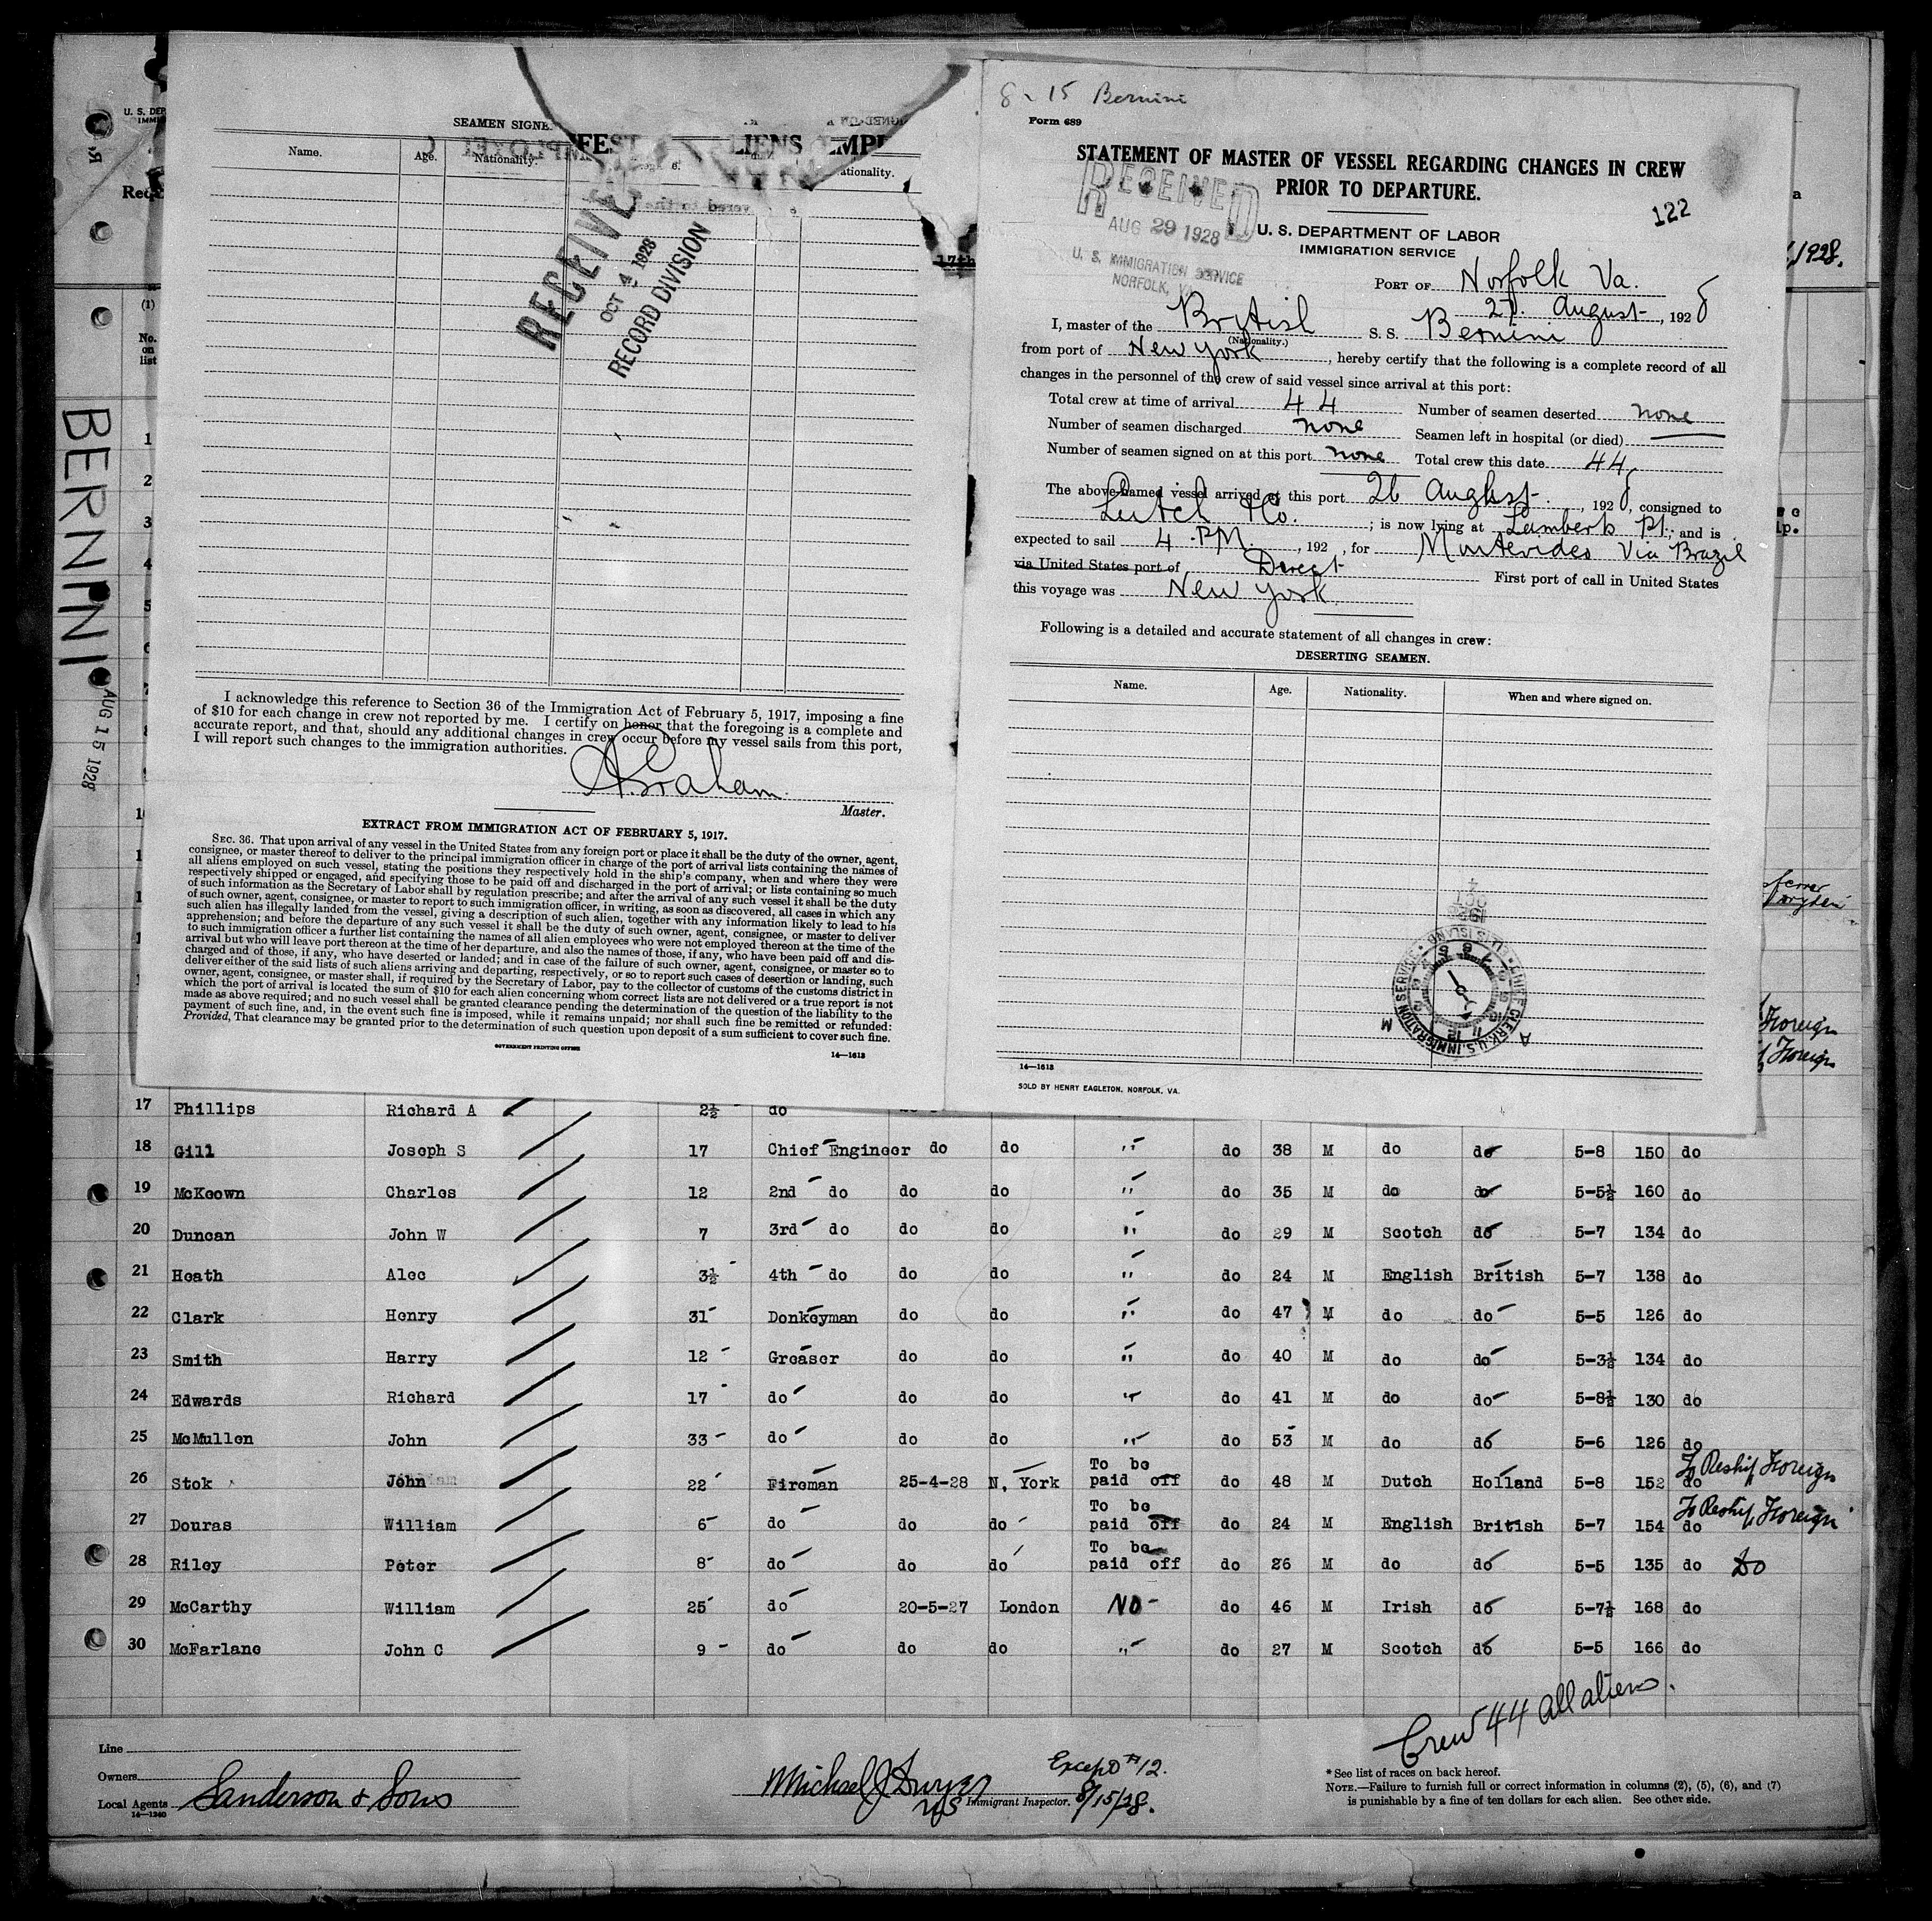 U. S. DEP
IMMI
Rec
(1)
No.
on
list
BERNINI
AUG 15 1928
SEAMEN SIGNE
FEST LIENS EMPL
Name. Age. Nationality. ationality.
RECEIVED
OCT 4 1928
RECORD DIVISION
I acknowledge this reference to Section 36 of the Immigration Act of February 5, 1917, imposing a fine
of $10 for each change in crew not reported by me. I certify on honor that the foregoing is a complete and
accurate report, and that, should any additional changes in crew occur before my vessel sails from this port,
I will report such changes to the immigration authorities.
A Graham
Master.
EXTRACT FROM IMMIGRATION ACT OF FEBRUARY 5, 1917.
SEC. 36. That upon arrival of any vessel in the United States from any foreign port or place it shall be the duty of the owner, agent,
consignee, or master thereof to deliver to the principal immigration officer in charge of the port of arrival lists containing the names of
all aliens employed on such vessel, stating the positions they respectively hold in the ship's company, when and where they were
respectively shipped or engaged, and specifying those to be paid off and discharged in the port of arrival; or lists containing so much
of such information as the Secretary of Labor shall by regulation prescribe; and after the arrival of any such vessel it shall be the duty
of such owner, agent, consignee, or master to report to such immigration officer, in writing, as soon as discovered, all cases in which any
such alien has illegally landed from the vessel, giving a description of such alien, together with any information likely to lead to his
apprehension; and before the departure of any such vessel it shall be the duty of such owner, agent, consignee, or master to deliver
to such immigration officer a further list containing the names of all alien employees who were not employed thereon at the time of the
arrival but who will leave port thereon at the time of her departure, and also the names of those, if any, who have been paid off and dis-
charged and of those, if any, who have deserted or landed; and in case of the failure of such owner, agent, consignee, or master so to
deliver either of the said lists of such aliens arriving and departing, respectively, or so to report such cases of desertion or landing, such
owner, agent, consignee, or master shall, if required by the Secretary of Labor, pay to the collector of customs of the customs district in
which the port of arrival is located the sum of $10 for each alien concerning whom correct lists are not delivered or a true report is not
made as above required; and no such vessel shall be granted clearance pending the determination of the question of the liability to the
payment of such fine, and, in the event such fine is imposed, while it remains unpaid; nor shall such fine be remitted or refunded:
Provided, That clearance may be granted prior to the determination of such question upon deposit of a sum sufficient to cover such fine.
GOVERNMENT PRINTING OFFICE
14—1613
17th
8-15 Bernini
Form 689
STATEMENT OF MASTER OF VESSEL REGARDING CHANGES IN CREW
PRIOR TO DEPARTURE.
122
RECEIVED
AUG 29 1928
U. S. IMMIGRATION SERVICE
NORFOLK, VA
U. S. DEPARTMENT OF LABOR
IMMIGRATION SERVICE
PORT OF Norfolk Va.
27. August, 1928
I, master of the British S. S. Bernini
(Nationality.)
from port of New York, hereby certify that the following is a complete record of all
changes in the personnel of the crew of said vessel since arrival at this port:
Total crew at time of arrival 44 Number of seamen deserted none
Number of seamen discharged none Seamen left in hospital (or died)
Number of seamen signed on at this port none Total crew this date 44
The above-named vessel arrived at this port 26 August, 1928, consigned to
& Co.; is now lying at Lamberts Pt; and is
expected to sail 4 PM., 192 , for Montevideo Via Brazil
via United States port of Direct First port of call in United States
this voyage was New York
Following is a detailed and accurate statement of all changes in crew:
DESERTING SEAMEN.
Name. Age. Nationality. When and where signed on.
CHIEF CLERK, U.S. IMMIGRATION SERVICE ELLIS ISLAND
14—1613
SOLD BY HENRY EAGLETON, NORFOLK, VA.
a
1928.
lp.
Foreign
Foreign
17 Phillips Richard A 2½ do
18 Gill Joseph S 17 Chief Engineer do do " do 38 M do do 5-8 150 do
19 McKeown Charles 12 2nd do do do " do 35 M do do 5-5½ 160 do
20 Duncan John W 7 3rd do do do " do 29 M Scotch do 5-7 134 do
21 Heath Alec 3½ 4th do do do " do 24 M English British 5-7 138 do
22 Clark Henry 31 Donkeyman do do " do 47 M do do 5-5 126 do
23 Smith Harry 12 Greaser do do " do 40 M do do 5-3½ 134 do
24 Edwards Richard 17 do do do " do 41 M do do 5-8½ 130 do
25 McMullen John 33 do do do " do 53 M do do 5-6 126 do
26 Stok John 22 Fireman 25-4-28 N. York To be paid off do 48 M Dutch Holland 5-8 152 do To Reship Foreign
27 Douras William 6 do do do To be paid off do 24 M English British 5-7 154 do To Reship Foreign
28 Riley Peter 8 do do do To be paid off do 26 M do do 5-5 135 do Do
29 McCarthy William 25 do 20-5-27 London NO do 46 M Irish do 5-7½ 168 do
30 McFarlane John C 9 do do do " do 27 M Scotch do 5-5 166 do
Crew 44 all aliens.
Except #12.
Line
Owners
Local Agents Sanderson & Sons
14—1240
Michael J Dwyer
Immigrant Inspector. 8/15/28.
* See list of races on back hereof.
NOTE.—Failure to furnish full or correct information in columns (2), (5), (6), and (7)
is punishable by a fine of ten dollars for each alien. See other side.